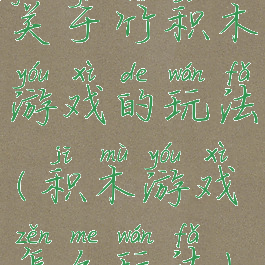 关于竹积木
yóu xì de wán fǎ
游戏的玩法
jī mù yóu xì
(积木游戏
zěn me wán fǎ
怎么玩法)